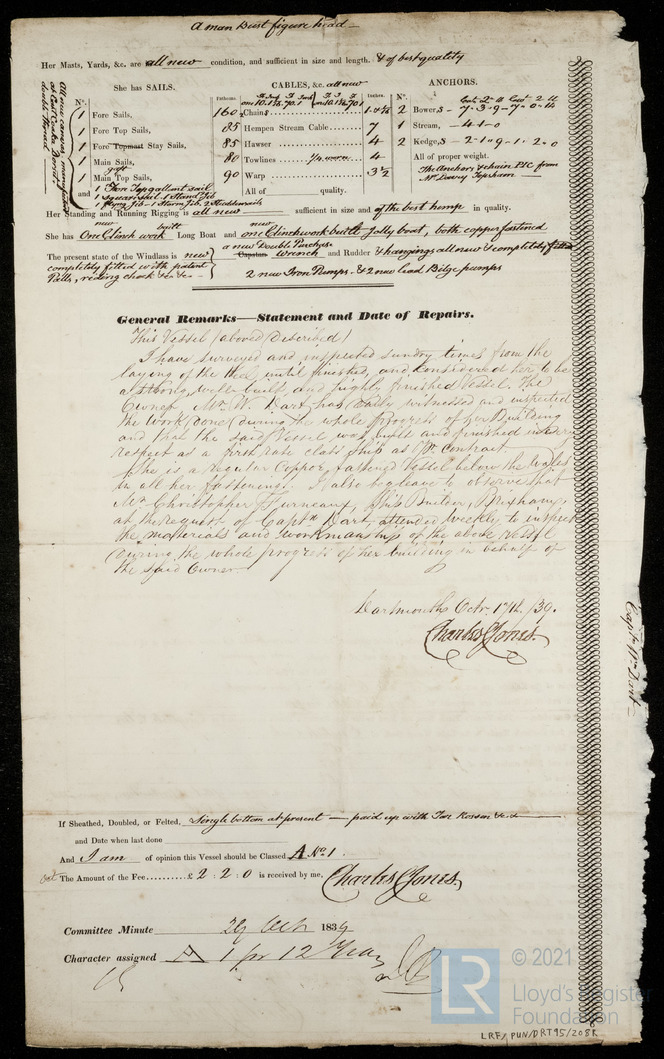 A man Bust figure head —
Her Masts, Yards, &c. are all new condition, and sufficient in size and length. & of best quality
She has SAILS.
CABLES, &c. all new
ANCHORS.
N°.
Fathoms.
Inches.
N°.
1 Fore Sails,
1 Fore Top Sails,
1 Fore Topmast Stay Sails,
1 Main Sails,
gaff
1 Main Top Sails,
and 1 Fore Topgallant sail
1 squaresail 1 Stand Jib
1 flying Jib 1 Storm Jib 2 Studdensails
All one canvas manufactured
at East Coker Devon
double thread
160 Chains
85 Hempen Stream Cable 7
85 Hawser 4
80 Towlines ¼ worn 4
90 Warp 3½
All of quality.
2 Bowers 7-3-9-7-0-14
1 Stream, - 4-1-0
2 Kedges, - 2-1-9-1-2-0
All of proper weight.
The Anchors & chain P&C from
Mr Davey Topsham
Her Standing and Running Rigging is all new sufficient in size and of the best hemp in quality.
new built new
She has One Clinch work Long Boat and one Clinchwork built Jolly boat, both copper fastened
a new Double Purchase
The present state of the Windlass is new Capstan Wrench and Rudder & hangings all new & completely fitted
completely fitted with patent
Palls, reeving chock &c &c
2 new Iron Pumps & 2 new lead Bilge pumps
General Remarks—Statement and Date of Repairs.
This Vessel (above Described)
I have surveyed and inspected sundry times from the
laying of the Keel until finished, and considered her to be
a strong, well built, and highly finished Vessel. The
Owner Mr. W. Dart has Daily witnessed and inspected
the Work done during the whole progress of her Building
and that the said Vessel was built and finished in every
respect as a first rate class ship as Pr contract.
She is a Regular Copper fastened Vessel below the Wales
in all her fastenings. I also beg leave to observe that
Mr Christopher Furneaux, Ship Builder, Brixham,
at the request of Captn Dart, attended Weekly to inspect
the materials and workmanship of the above Vessel
During the whole progress of her building in behalf of
the said Owner.
Dartmouth Octr. 17th /39.
Charles Jones.
Captn Wm Dart
If Sheathed, Doubled, or Felted, Single bottom at present — paid up with Tar Rossen &c
and Date when last done
And I am of opinion this Vessel should be Classed A No. 1
The Amount of the Fee £ 2 : 2 : 0 is received by me, Charles Jones.
Committee Minute 29 Octr 1839
Character assigned A 1 for 12 Years
LR
© 2021
Lloyd's Register
Foundation
LRF/PUN/DRT95/208R